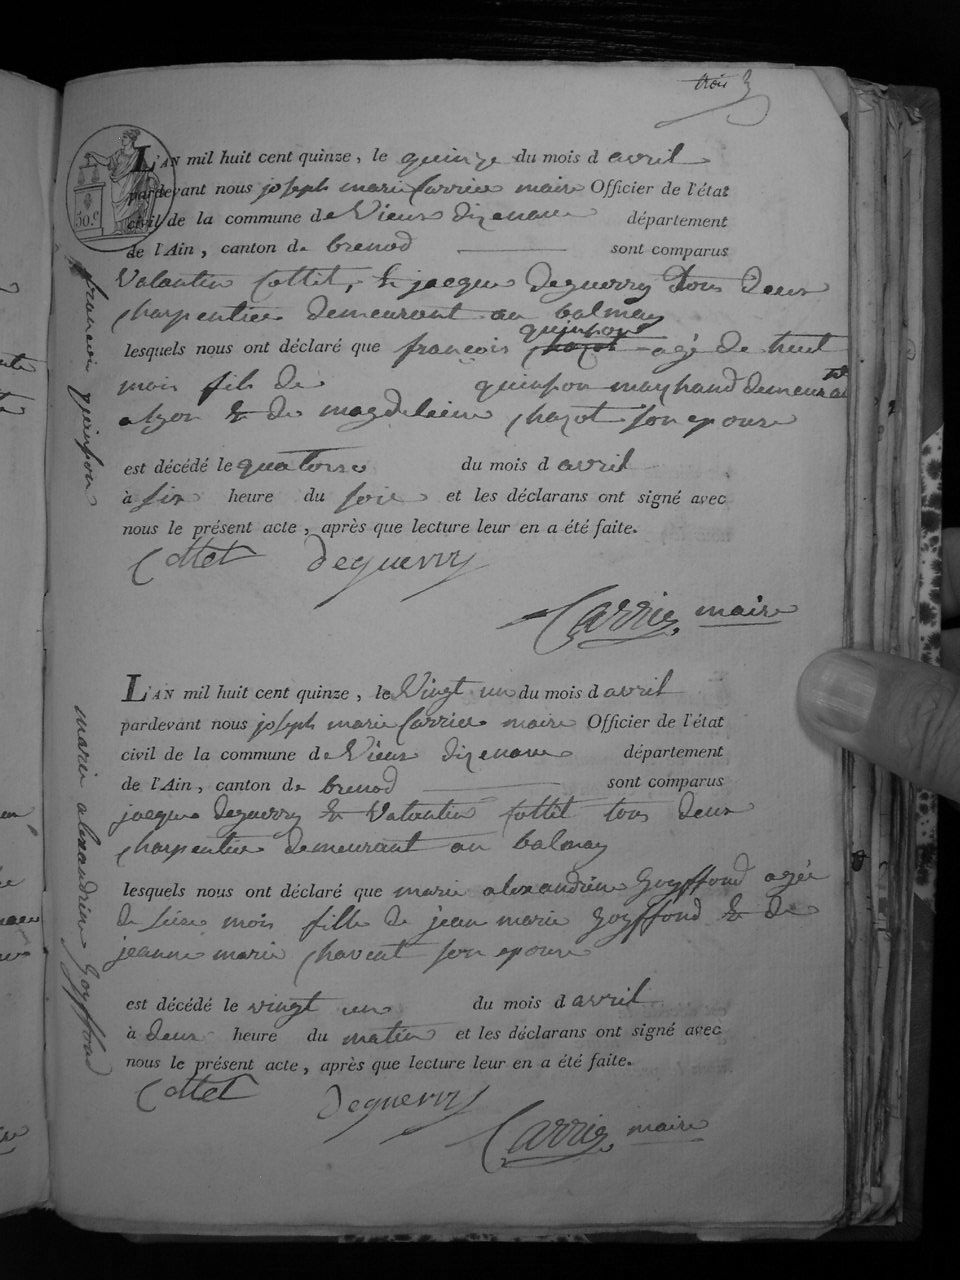 trois 3
50.c
L'AN mil huit cent quinze, le quinze du mois d avril
pardevant nous joseph marie Carrier maire Officier de l'état
civil de la commune de Vieux dizenave département
de l'Ain, canton de brenod sont comparus
Valantin Cottet, & jacque Deguerry tous deux
charpentier demeurant au balmay
quinson
lesquels nous ont déclaré que françois chazot agé de huit
mois fils de quinson marchand demeurant
a lyon & de magdelaine chazot son epouse
est décédé le quatorse du mois d avril
à six heure du soir et les déclarans ont signé avec
nous le présent acte, après que lecture leur en a été faite.
Cottet Deguerry
Carrier maire
françois quinson
L'AN mil huit cent quinze, le Vingt un du mois d avril
pardevant nous joseph marie Carrier maire Officier de l'état
civil de la commune de Vieux dizenave département
de l'Ain, canton de brenod sont comparus
jacque deguerry & Valantin Cottet tous deux
charpentier demeurant au balmay
lesquels nous ont déclaré que marie alexandrine goyffond agée
de mois fille de jean marie goyffond & de
jeanne marie chavent son epouse
est décédé le vingt un du mois d avril
à deux heure du matin et les déclarans ont signé avec
nous le présent acte, après que lecture leur en a été faite.
Cottet Deguerry
Carrier maire
marie alexandrine goyffond